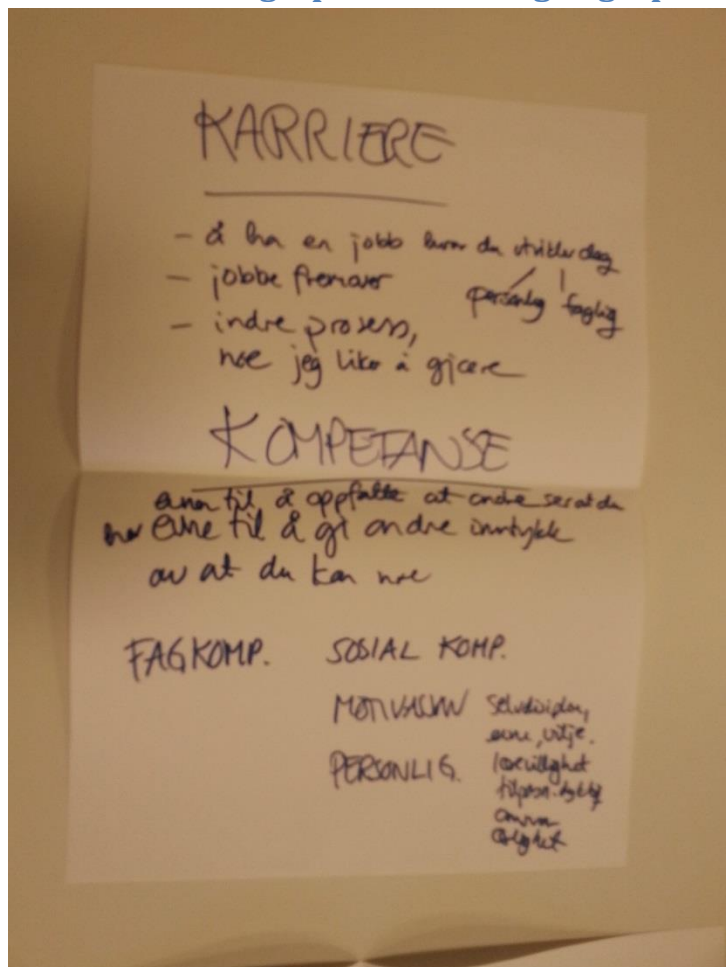 KARRIERE
- å ha en jobb hvor du utvikler deg
personlig faglig
- jobbe fremover
- indre prosess,
noe jeg liker å gjøre
KOMPETANSE
evnen til å oppfatte at andre ser at du
har evne til å gi andre inntrykk
av at du kan noe
FAGKOMP. SOSIAL KOMP.
MOTIVASJON selvdisiplin,
evne, vilje.
PERSONLIG. lærevillighet
ærlighet